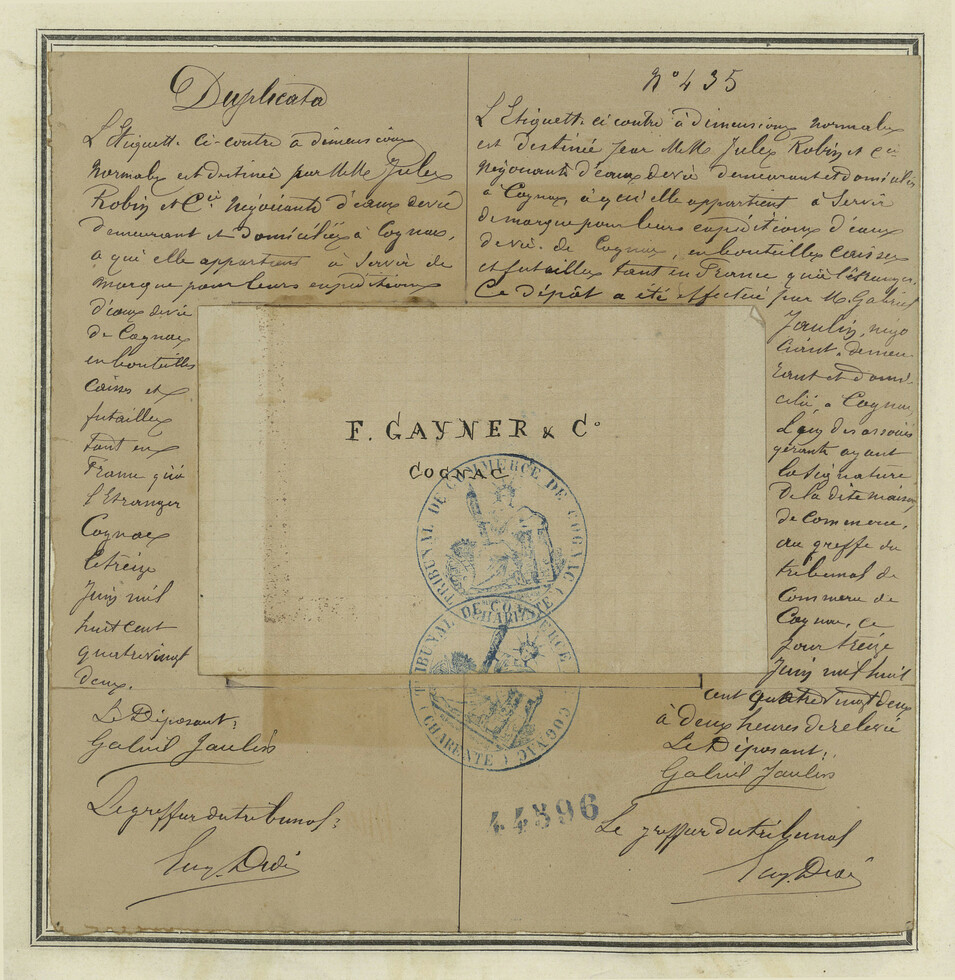 Duplicata
L'Etiquette ci-contre à dimensions
normales est destinée par MMrs Jules
Robin et Cie négociants d'eaux de vie
demeurant et domiciliés à Cognac,
à qui elle appartient à servir de
marque pour leurs expéditions
d'eaux de vie
de Cognac
en bouteilles
caisses et
futailles
tant en
France qu'à
l'Etranger
Cognac
le treize
Juin mil
huit cent
quatre vingt
deux.
Le Déposant:
Gabriel Jaulin
Le greffier du tribunal:
Eug. Didi
No 435
L'Etiquette ci contre à dimensions normales
est destinée par MMrs Jules Robin et Cie
négociants d'eaux de vie demeurant et domiciliés
à Cognac, à qui elle appartient à servir
de marque pour leurs expéditions d'eaux
de vie de Cognac, en bouteilles caisses
et futailles tant en France qu'à l'étranger.
Ce dépôt a été effectué par M. Gabriel
Jaulin, négo
ciant, demeu
rant et domi
cilié, à Cognac,
l'un des associés
gérants ayant
la signature
de la dite maison
de commerce,
au greffe du
tribunal de
Commerce de
Cognac, ce
jour treize
Juin mil huit
cent quatre vingt deux
à deux heures de relevée
Le Déposant:
Gabriel Jaulin
Le greffier du tribunal
Eug. Didi
F. GAYNER & Co
COGNAC
TRIBUNAL DE COMMERCE DE COGNAC (CHARENTE)
TRIBUNAL DE COMMERCE COGNAC (CHARENTE)
44896